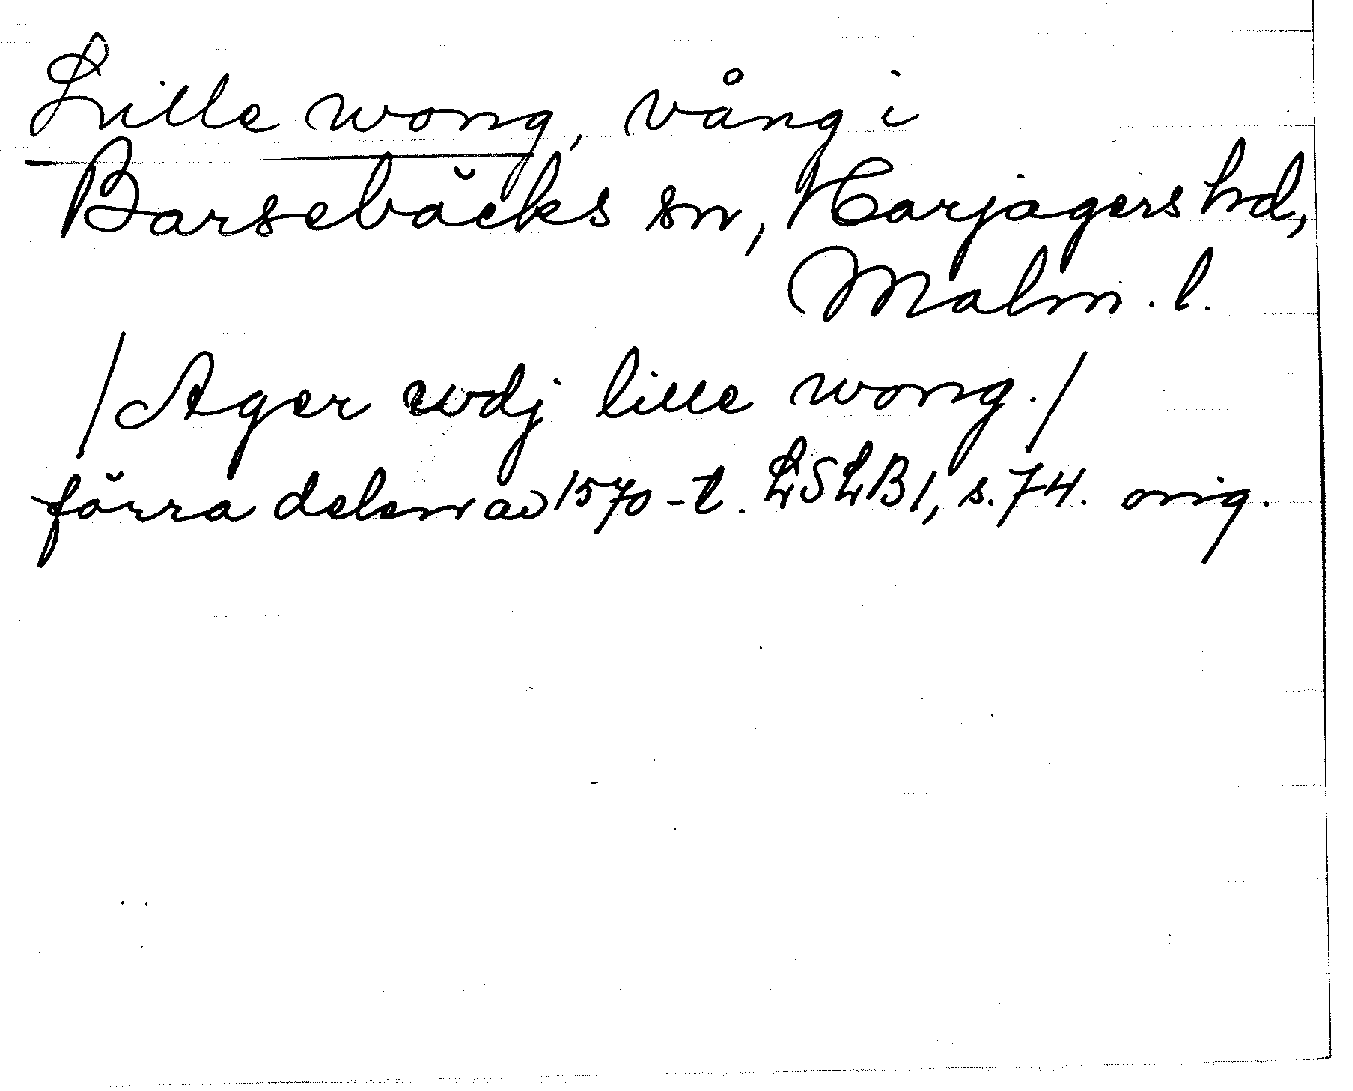 Lille wong, vång i
Barsebäcks sn, Harjagers hd,
Malm. l.
/Ager wdj lille wong./
förra delen av 1570-t. LSLB1, s. 74. orig.